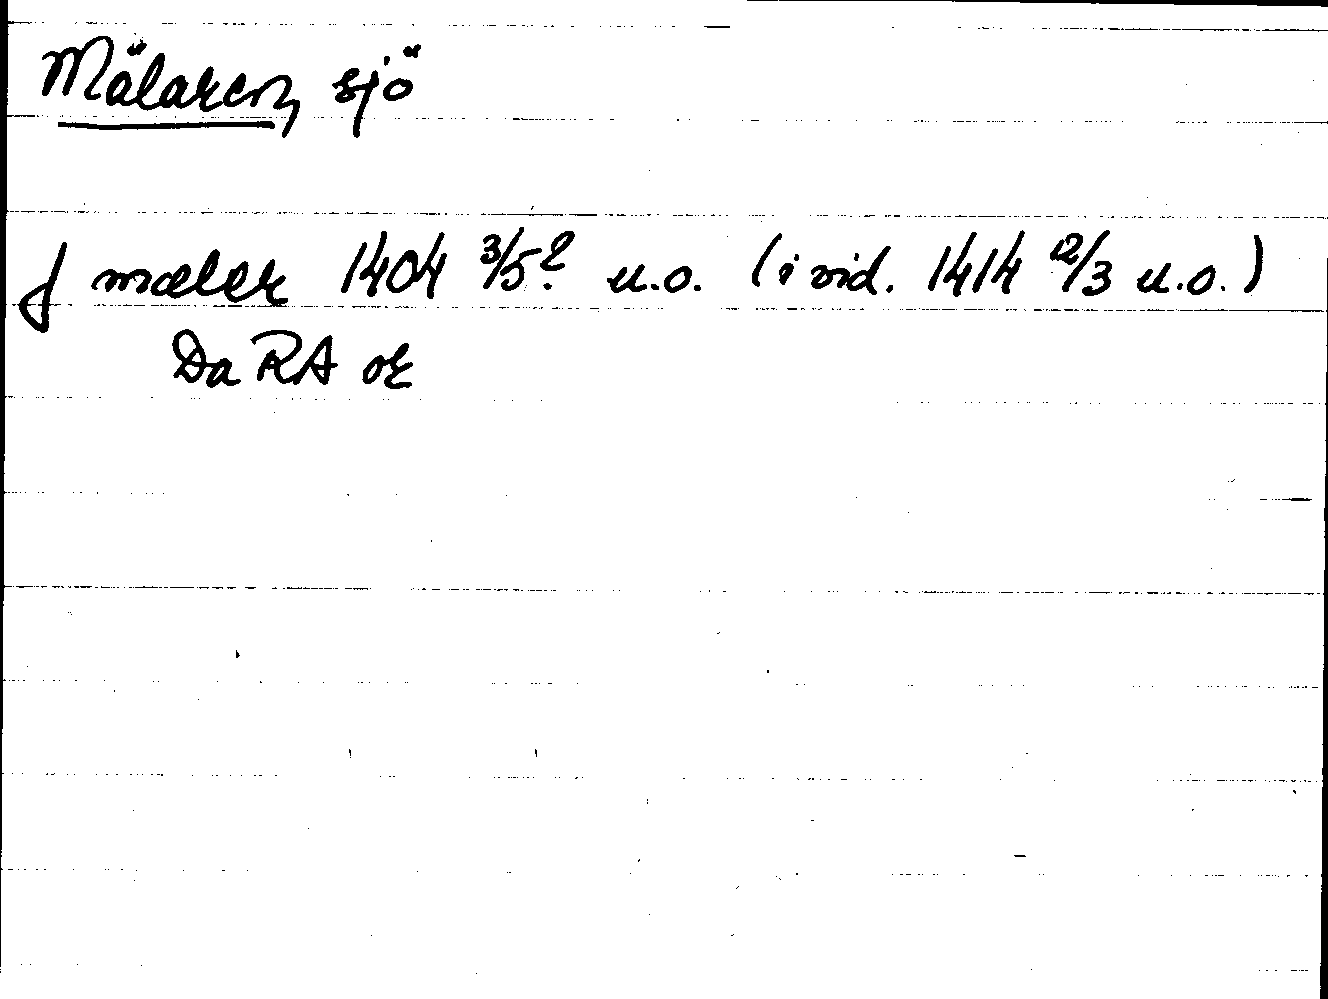 Mälaren, sjö
J mæler 1404 3/5? u.o. (i vid. 1414 12/3 u.o.)
Da RA or